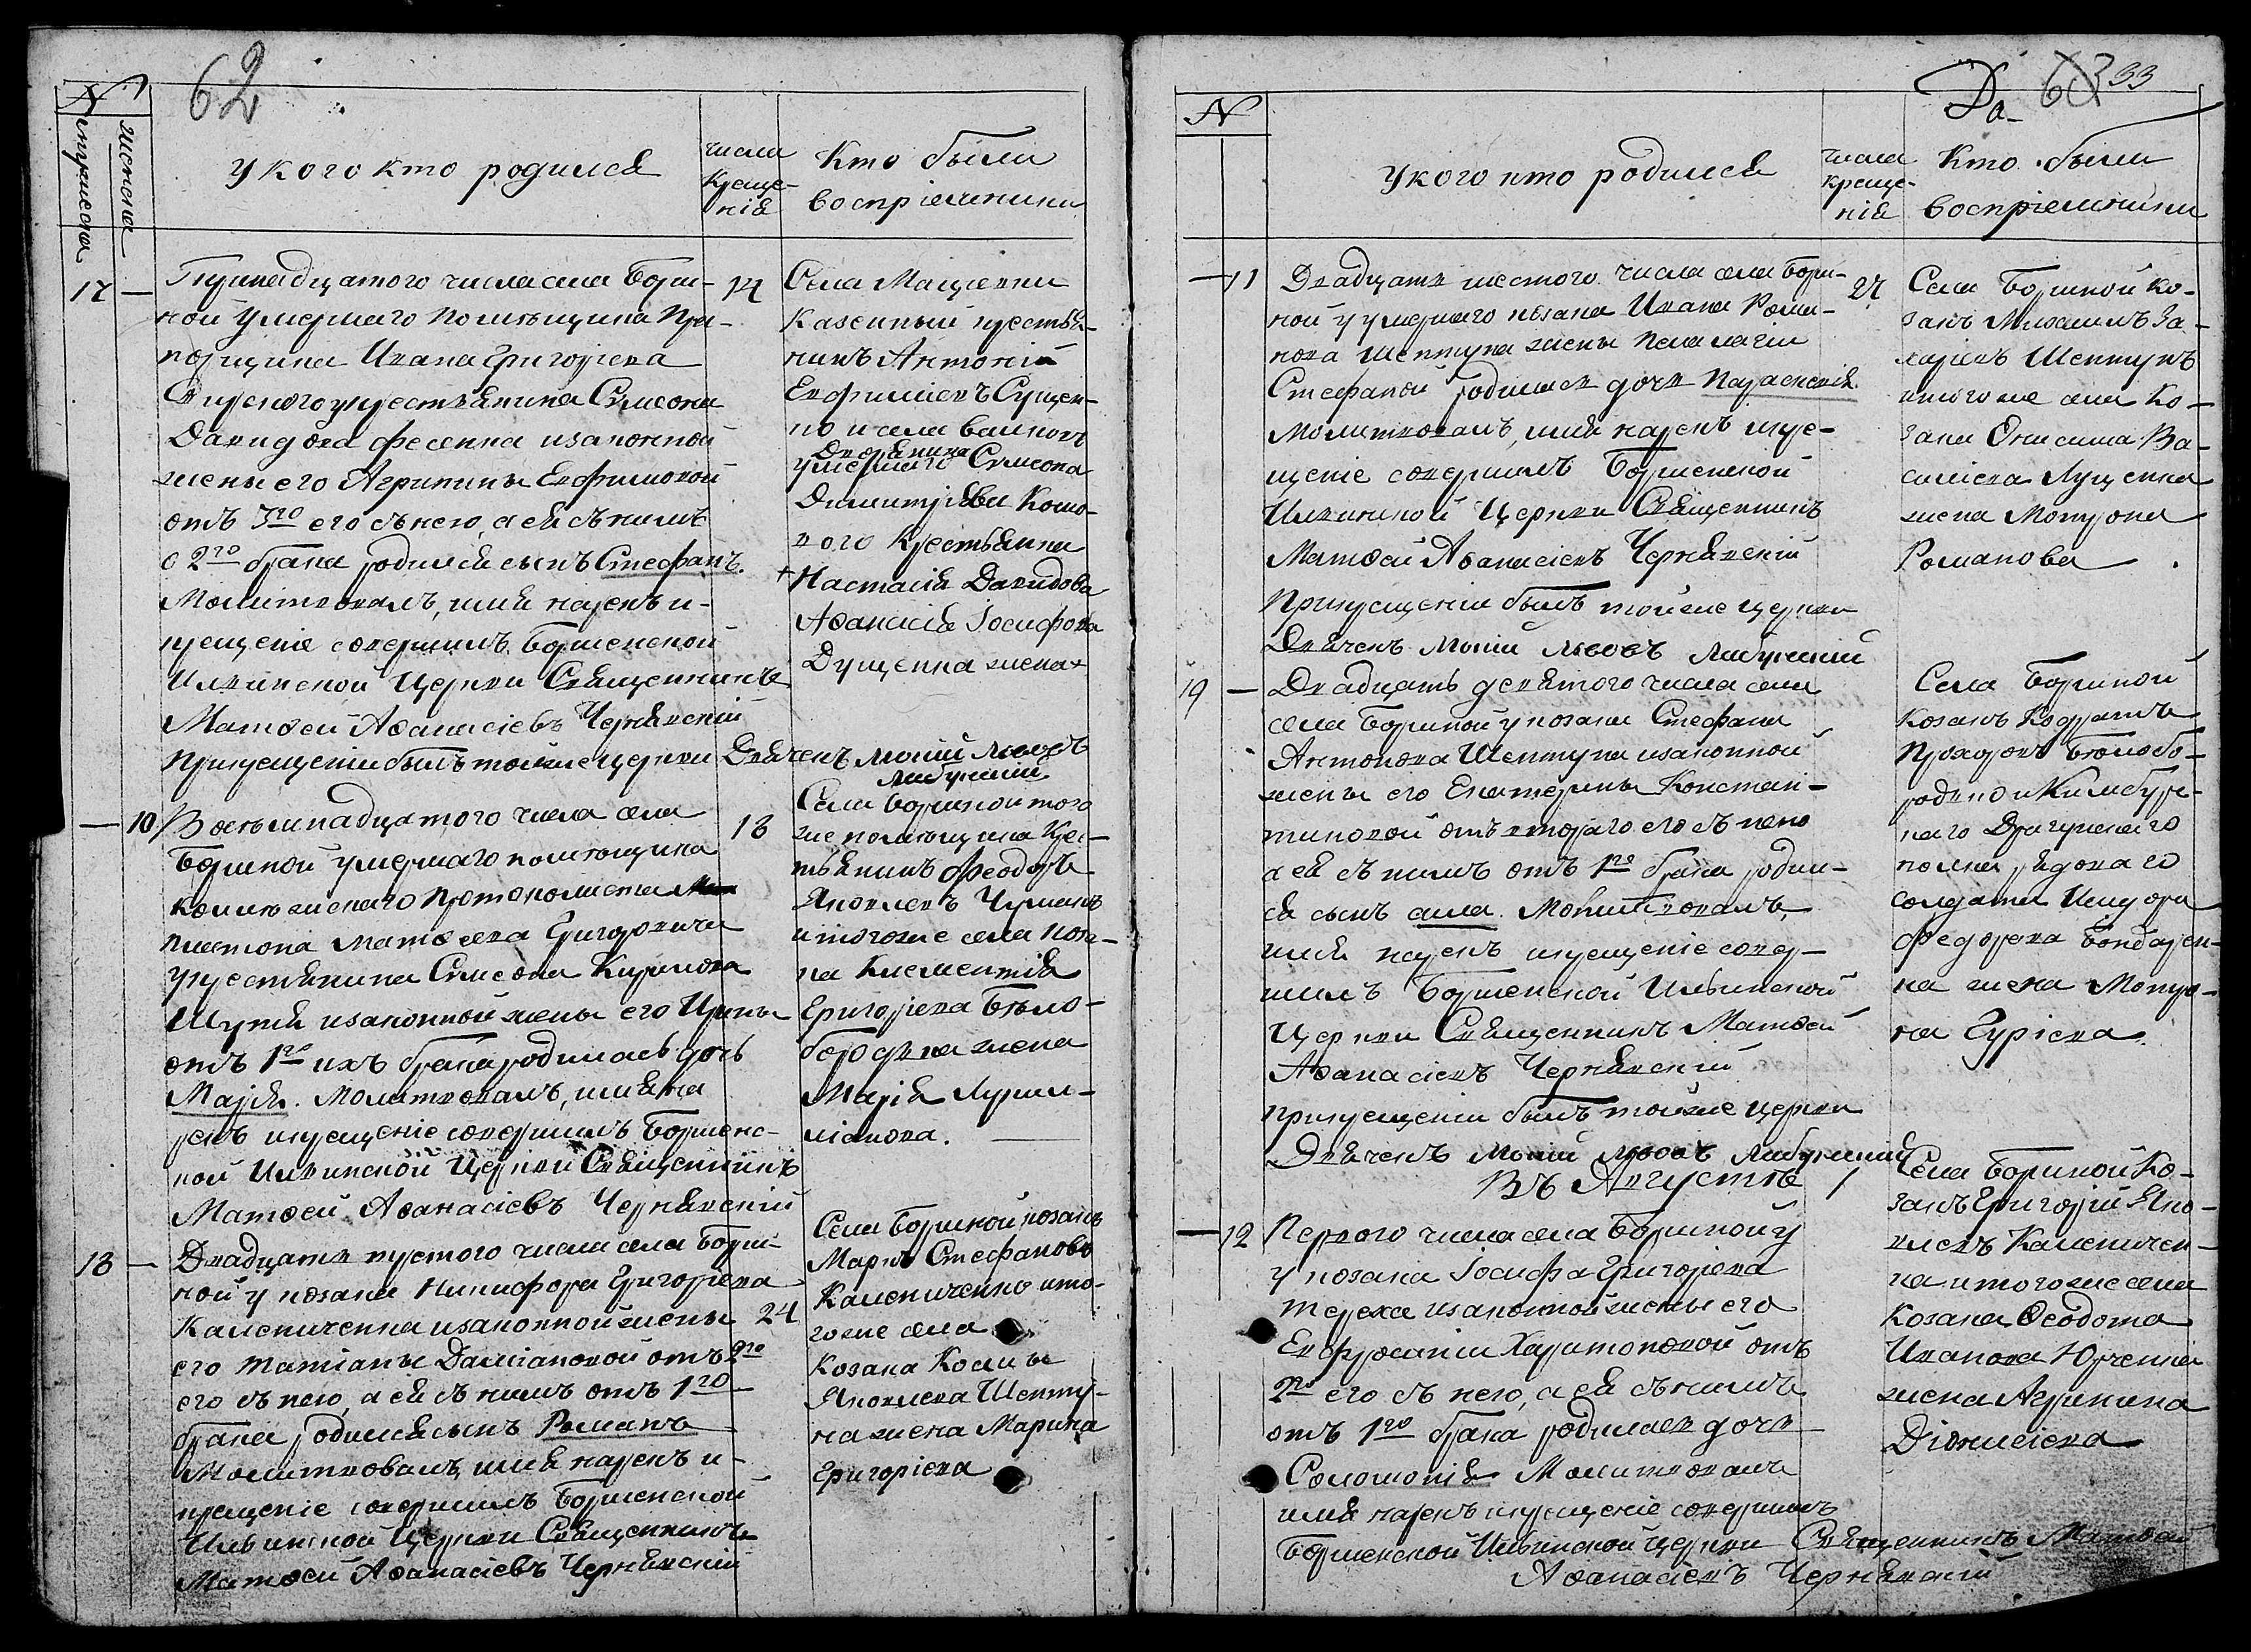 62
N
мужеска
женска
у кого кто родился
числа
креще-
нія
Кто были
воспріемники
17 —
Тринадцатого числа села Борш-
ной умершаго помѣщика Пра-
порщика Ивана Григоріева
крестьянина Симеона
Давидова Фесенка изаконной
жены его Агрипины Евфимовой
отъ 3го его съ нею, а ея съ нимъ
с 2го брака родился сынъ Стефанъ.
Молитвовалъ, имя нарекъ и-
крещеніе совершилъ Боршенской
Ильинской Церкви Священникъ
Матѳей Аѳанасіевъ Чернявскій
Прикрещеніи былъ тойже церкви Дьячекъ Мокій Львовъ
14
Села Мащевки
Казенный крестья-
нинъ Антоній
Евфиміевъ Сущен-
ко и села
Дворянина
умершаго Симеона
Димитріева
крестьянка
+ Настасія Давидова
Аѳанасія Іосифова
Дущенка жена+
— 10
Восьмнадцатого числа села
Боршной умершаго помѣщика
коллежскаго протоколиста
Платона Матѳеева Григоровича
укрестьянина Симеона Кирилова
Шункя изаконной жены его Ирины
отъ 1го ихъ брака родилась дочь
Марія. Молитвовалъ, имя на
рекъ икрещеніе совершилъ Боршенс-
кой Ильинской Церкви Священникъ
Матѳей Аѳанасіевъ Чернявскій
18
Села Боршной того
же помѣщика Крес-
тьянинъ Феодоръ
Яковлевъ Чумакъ
итогоже села коза-
ка Климентія
Григоріева Бѣло-
бородька жена
Марія Лукил-
ліанова.
18 —
Двадцать третого числа села Борш-
ной у козака Никифора Григоріева
Калениченка изаконной жены
его Татіаны Даміановой отъ 2го
его съ нею, а ея съ нимъ отъ 1го
брака родился сынъ Романъ
Молитвовалъ, имя нарекъ и-
крещеніе совершилъ Боршенской
Ильинской Церкви Священникъ
Матѳей Аѳанасіевъ Чернявскій
24
Села Боршной козакъ
Маркъ Стефановъ
Калениченко ито-
гоже села
Козака Космы
Яковлева Шепту-
на жена Марина
Григоріева
Да-
63 33
N
у кого кто родился
числа
креще-
нія
Кто были
воспріемники
— 11
Двадцать шестого числа села Борш-
ной у умершаго козака Ивана Рома-
нова Шептуна жены Пелагіи
Стефановой родилась дочь Параскевія.
Молитвовалъ, имя нарекъ икре-
щеніе совершилъ Боршенской
Ильинской Церкви Священникъ
Матѳей Аѳанасіевъ Чернявскій
Прикрещеніи былъ тойже церкви
Дьячекъ Мокій Львовъ
27
Села Боршной ко-
закъ Михаилъ За-
харіевъ Шептунъ
итогоже села Ко-
зака Онисима Ва-
силіева Лущенка
жена Мотрона
Романова.
19 —
Двадцать девятого числа села
села Боршной у козака Стефана
Антонова Шептуна изаконной
жены его Екатерины Констан-
тиновой отъ втораго его съ нею
а ея съ нимъ отъ 1го брака родил-
ся сынъ Молитвовалъ,
имя нарекъ икрещеніе совер-
шилъ Боршенской Ильинской
Церкви Священникъ Матѳей
Аѳанасіевъ Чернявскій
прикрещеніи былъ тойже церкви
Дьячекъ Мокій Львовъ
Села Боршной
Козакъ Кодратъ
Прохоровъ Бѣлобо-
родько и Кинбурн-
скаго Драгунскаго
полка рядоваго
солдата Исидора
Федорова Бондарен-
ка жена Мотро-
на Гуріева.
Въ Августѣ
— 12
Первого числа села Боршной у
у козака Іосифа Григоріева
Тереха изаконной жены его
Евфросиніи Харитоновой отъ
2го его съ нею, а ея съ нимъ
отъ 1го брака родилась дочь
Соломонія Молитвовалъ
имя нарекъ икрещеніе совершилъ
Боршенской Ильинской церкви Священникъ Матѳей
Аѳанасіевъ Чернявскій
1
Села Боршной Ко-
закъ Григорій Яко-
влевъ Каленичен-
ка итогоже села
Козака Ѳеодота
Иванова Юрченка
жена Агрипина
Діонисіева